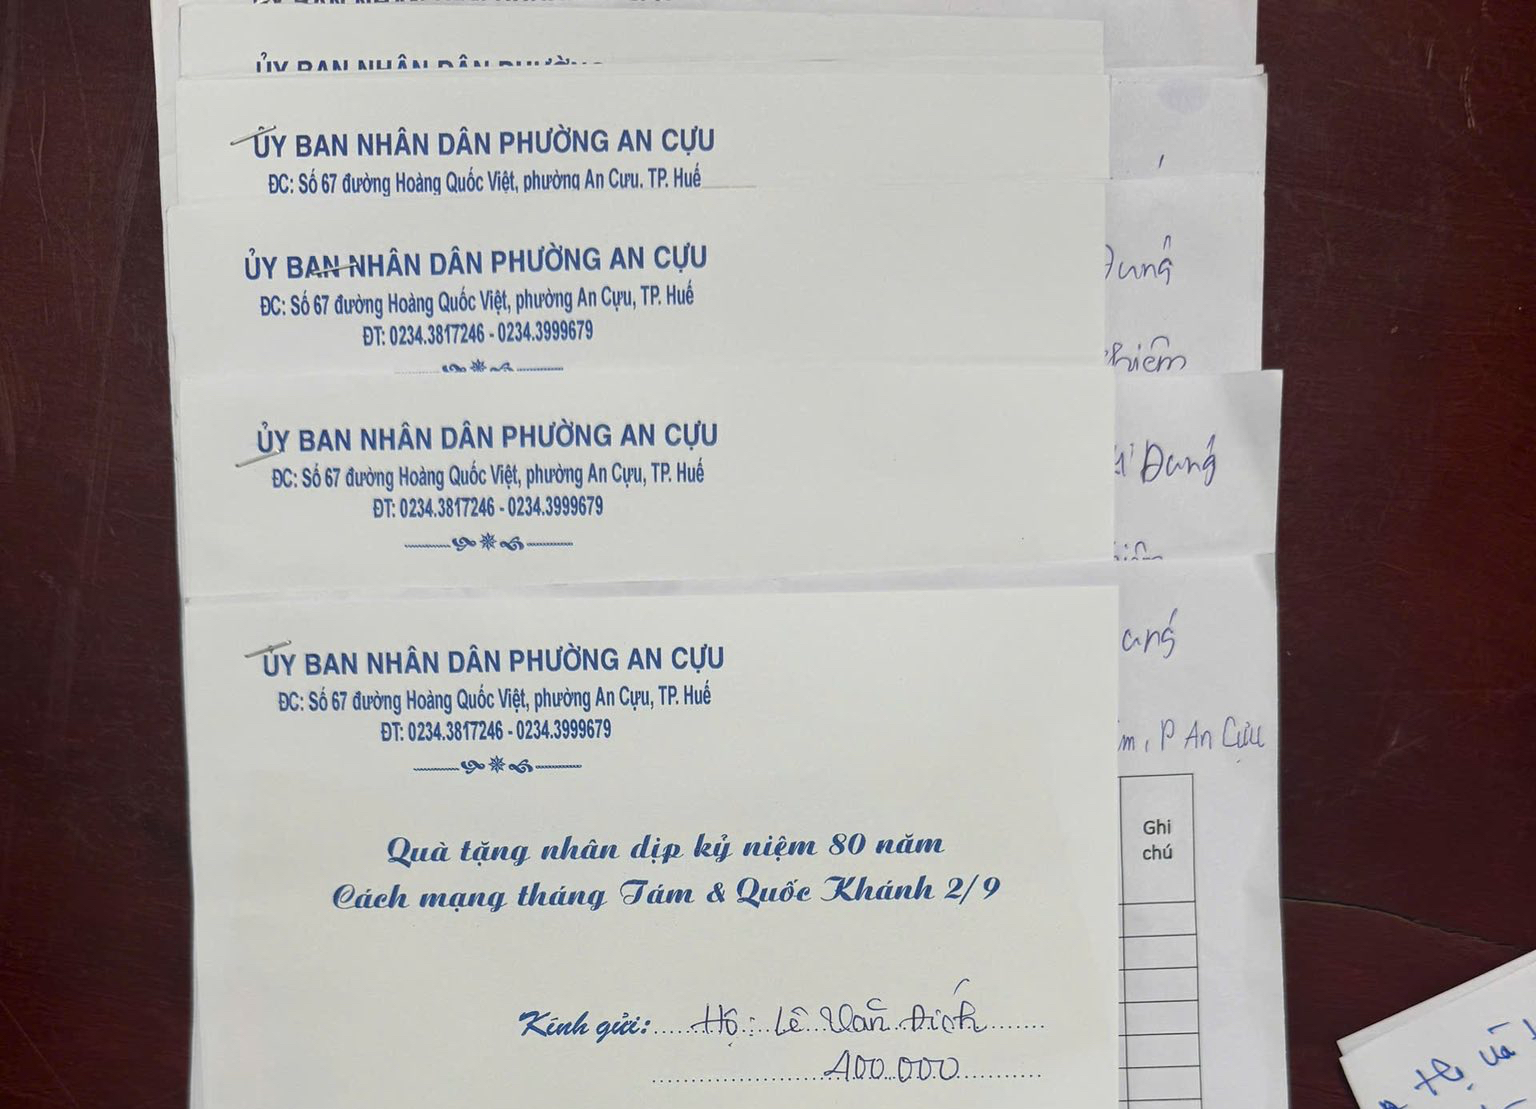 ỦY BAN NHÂN DÂN PHƯỜNG AN CỰU
ĐC: Số 67 đường Hoàng Quốc Việt, phường An Cựu, TP. Huế
Dung
ỦY BAN NHÂN DÂN PHƯỜNG AN CỰU
ĐC: Số 67 đường Hoàng Quốc Việt, phường An Cựu, TP. Huế
ĐT: 0234.3817246 - 0234.3999679
ỦY BAN NHÂN DÂN PHƯỜNG AN CỰU
ĐC: Số 67 đường Hoàng Quốc Việt, phường An Cựu, TP. Huế
ĐT: 0234.3817246 - 0234.3999679
ỦY BAN NHÂN DÂN PHƯỜNG AN CỰU
ĐC: Số 67 đường Hoàng Quốc Việt, phường An Cựu, TP. Huế
ĐT: 0234.3817246 - 0234.3999679
P An Cựu
Ghi
chú
Quà tặng nhân dịp kỷ niệm 80 năm
Cách mạng tháng Tám & Quốc Khánh 2/9
Kính gửi: Hộ: Lê Văn Đích
400.000
và